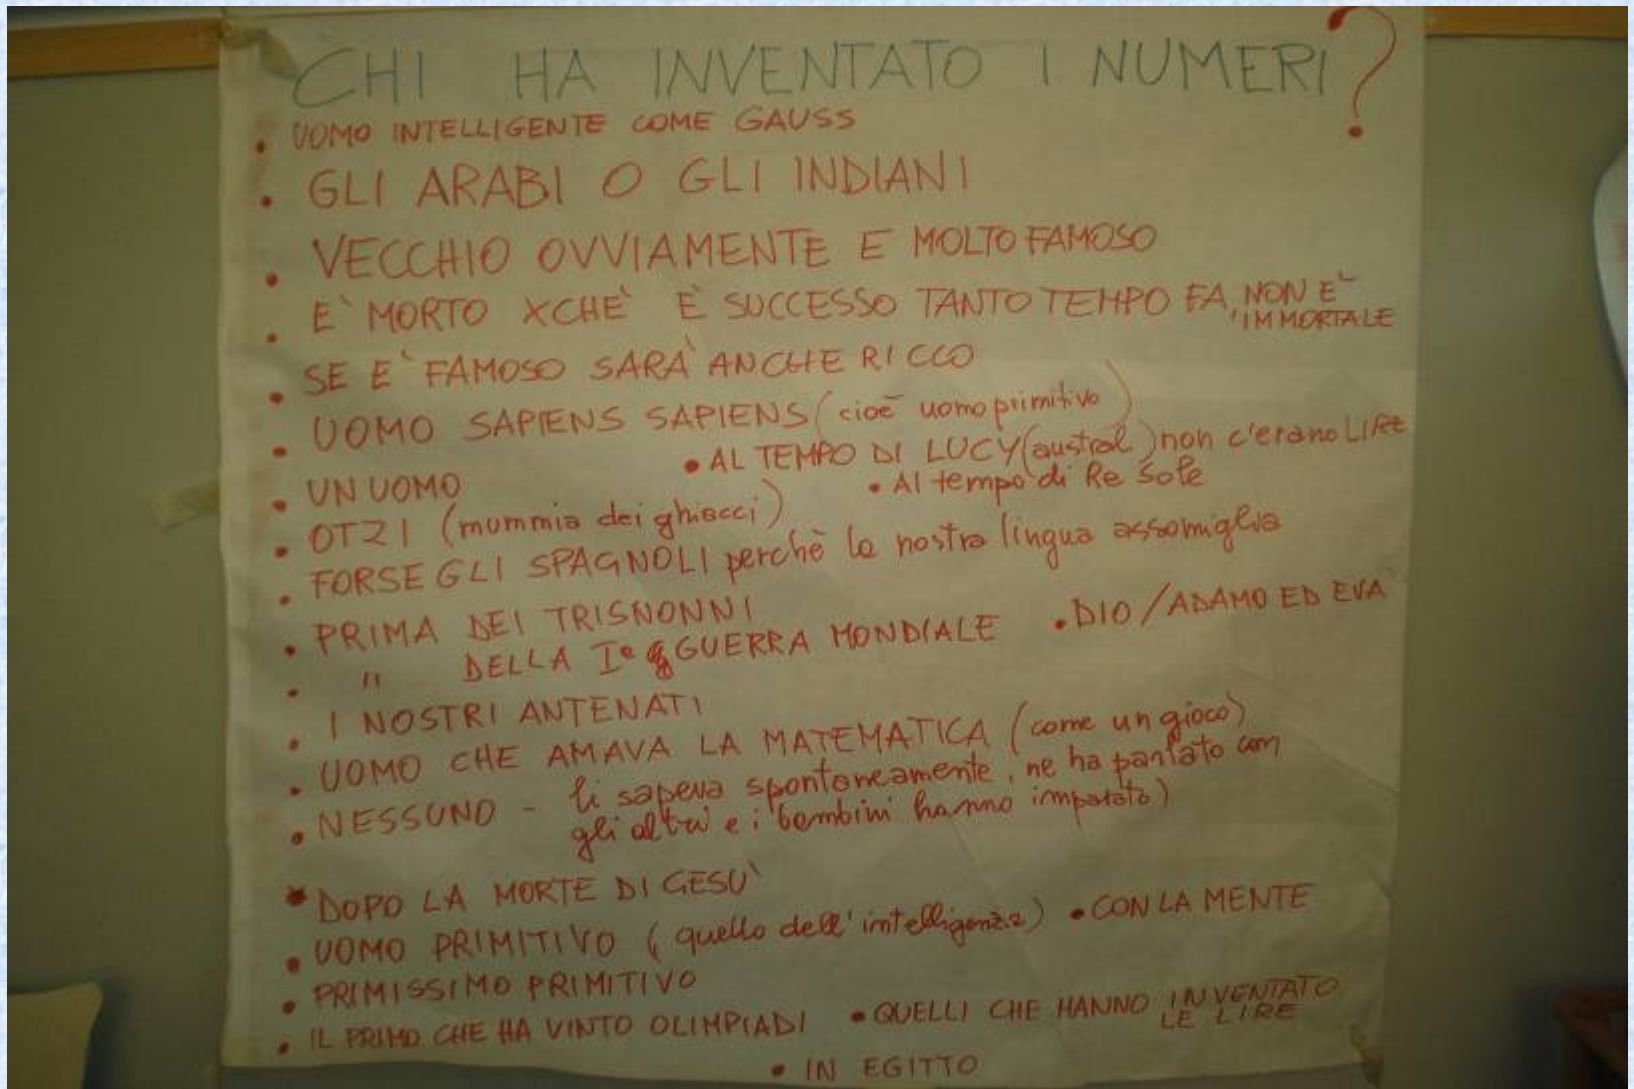 CHI HA INVENTATO I NUMERI?
• UOMO INTELLIGENTE COME GAUSS
• GLI ARABI O GLI INDIANI
• VECCHIO OVVIAMENTE E MOLTO FAMOSO
• E` MORTO XCHE` E` SUCCESSO TANTO TEMPO FA, NON E`
IMMORTALE
• SE E` FAMOSO SARA` ANCHE RICCO
• UOMO SAPIENS SAPIENS (cioè uomo primitivo)
• AL TEMPO DI LUCY (austral.) non c'erano LIRE
• UN UOMO
• Al tempo di Re Sole
• OTZI (mummia dei ghiacci)
• FORSE GLI SPAGNOLI perchè la nostra lingua assomiglia
• PRIMA DEI TRISNONNI
• " DELLA Iª GUERRA MONDIALE • DIO/ADAMO ED EVA
• I NOSTRI ANTENATI
• UOMO CHE AMAVA LA MATEMATICA (come un gioco)
• NESSUNO - li sapeva spontaneamente, ne ha parlato con
gli altri e i bambini hanno imparato)
• DOPO LA MORTE DI GESU`
• UOMO PRIMITIVO (quello dell'intelligenza) • CON LA MENTE
• PRIMISSIMO PRIMITIVO
• IL PRIMO CHE HA VINTO OLIMPIADI • QUELLI CHE HANNO INVENTATO
LE LIRE
• IN EGITTO